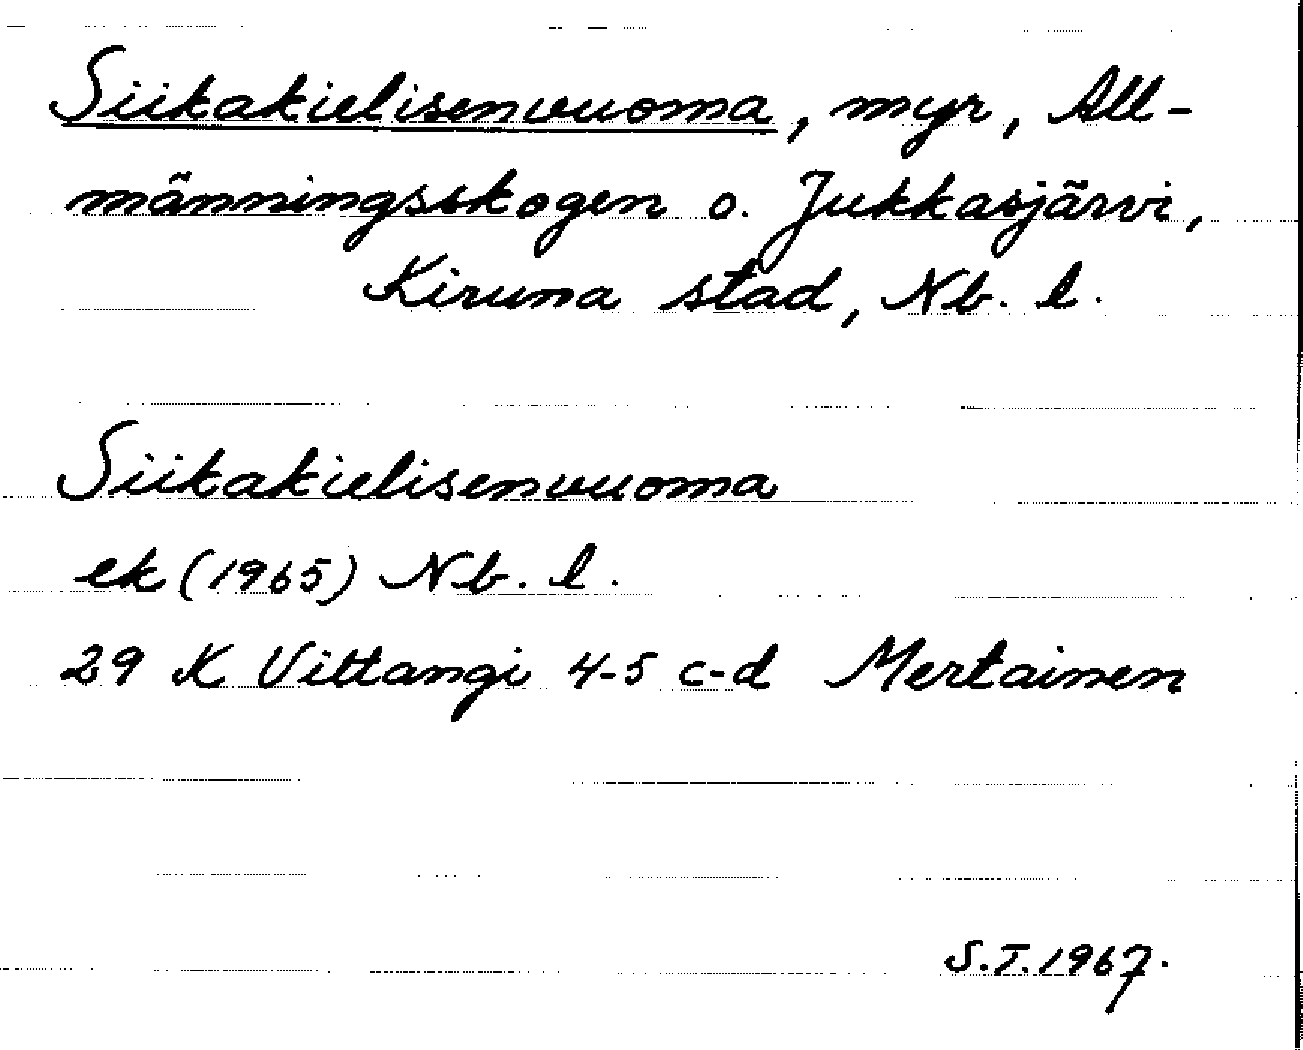 Siikakielisenvuoma, myr, All-
männingsskogen o. Jukkasjärvi,
Kiruna stad, Nb. l.
Siikakielisenvuoma
ek (1965) Nb. l.
29 K Vittangi 4-5 c-d Mertainen
S.T. 1967.